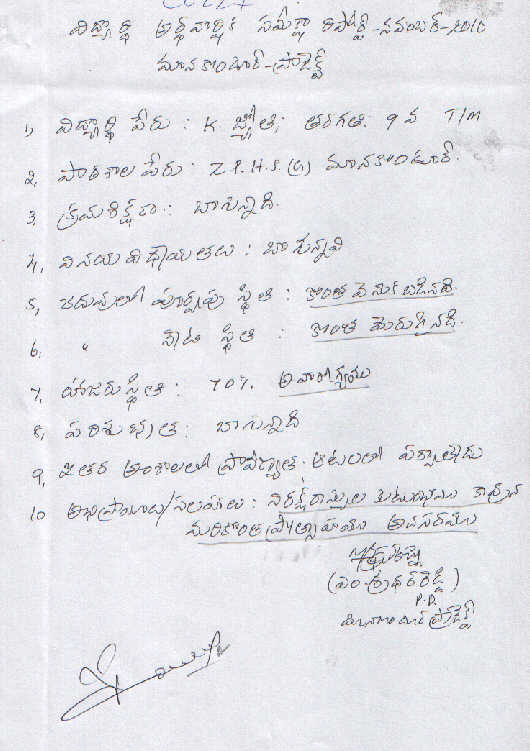 విద్యార్థి అర్థవార్షిక సమీక్షా రిపోర్ట్ - నవంబర్-2010
మానకొండూర్-ప్రాజెక్ట్
1, విద్యార్థి పేరు : K జ్యోతి; తరగతి: 9 వ T/M
2, పాఠశాల పేరు : Z.P.H.S.(G) మానకొండూర్.
3, క్రమశిక్షణ : బాగున్నది.
4, వినయ విధేయతలు : బాగున్నవి
5, చదువులో పూర్వపు స్థితి : కొంత వెనుకబడినది.
6. " నేటి స్థితి : కొంత మెరుగైనది.
7, హాజరుస్థితి : 70%. అనారోగ్యము
8, పరిశుభ్రత : బాగున్నది
9, ఇతర అంశాలలో ప్రావీణ్యత. ఆటలలో
10 అభిప్రాయాలు/సలహాలు : నిరక్షరాస్యుల కుటుంబము కావున
మరికొంత ప్రోత్సాహము అవసరము
(ఎం.శ్రీధర్ రెడ్డి)
P.D.